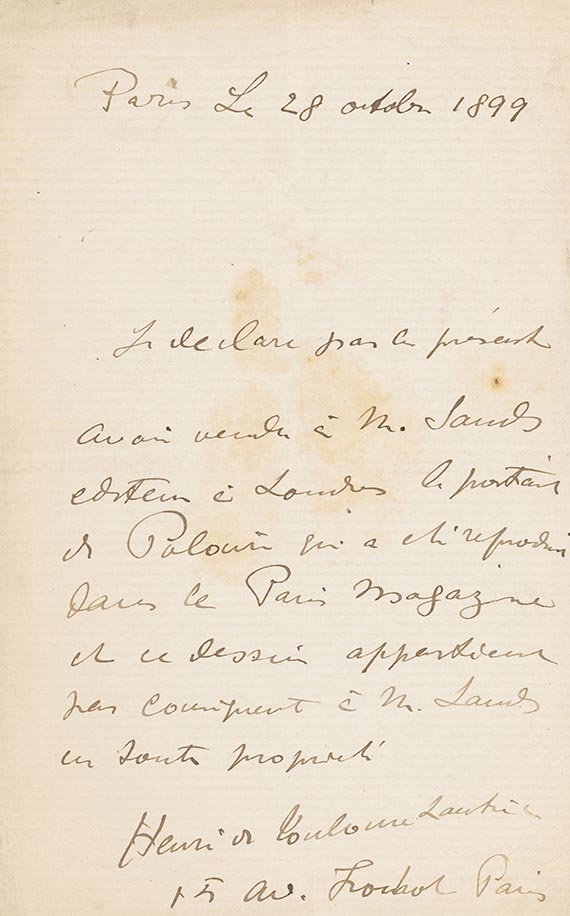 Paris Le 28 octobre 1899
Je declare par la présente
avoir vendu à M. Sands
editeur à Londres le portrait
de Polaire qui a eté reproduit
dans le Paris Magazine
et ce dessin appartient
par consequent à M. Sands
en toute propriété
Henri de Toulouse Lautrec
15 Av. Frochot Paris